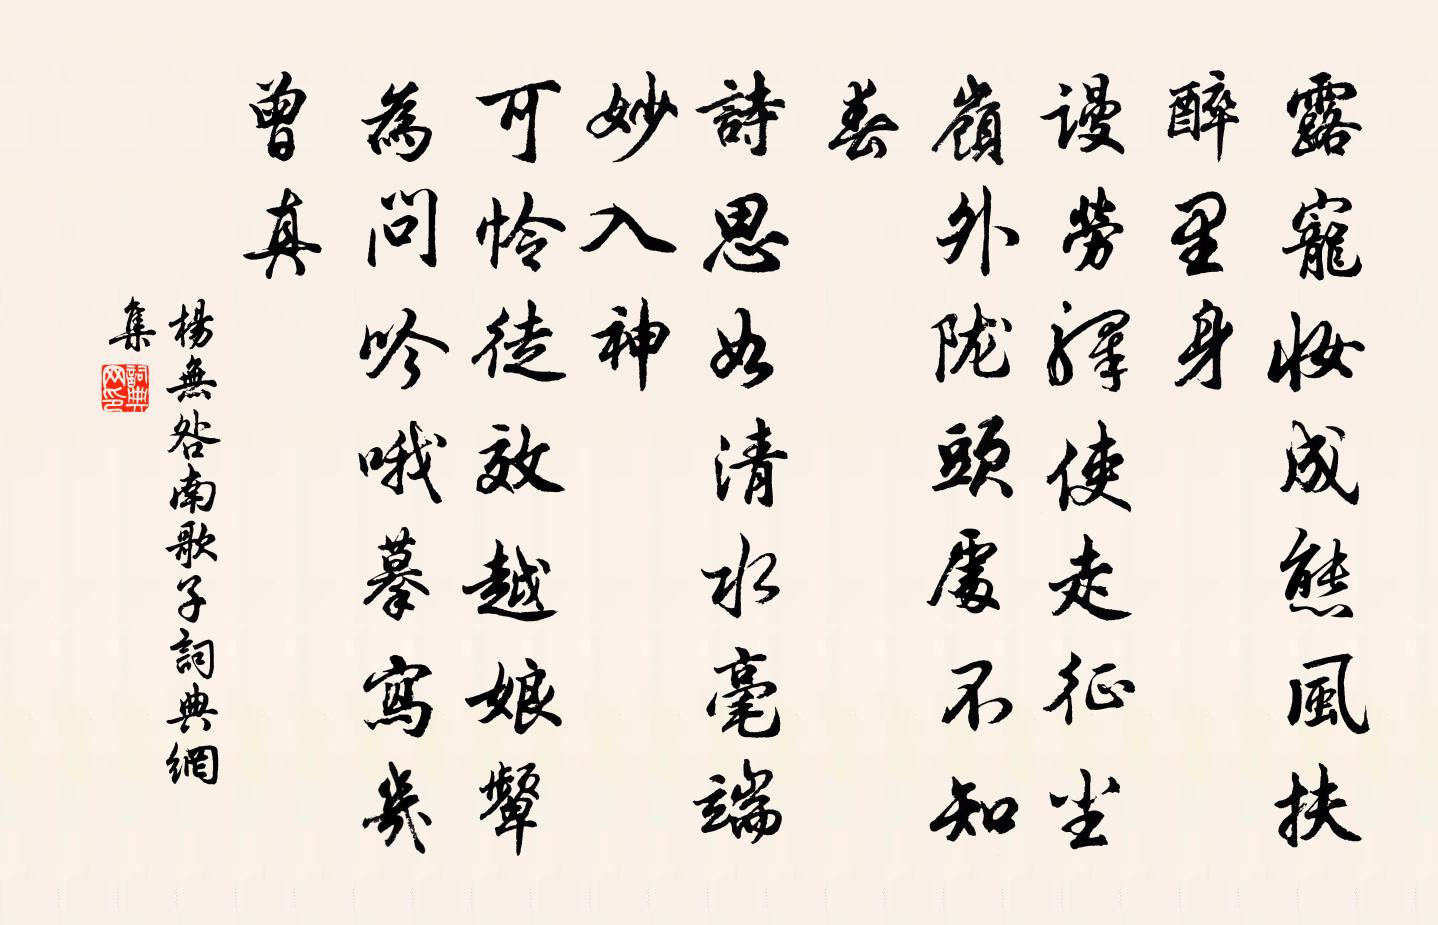 露寵妝成態風扶
醉里身
謾勞驛使走征尘
嶺外陇頭處不知
春
詩思如清水毫端
妙入神
可怜徒效越娘顰
為問吟哦摹寫幾
曾真
楊無咎南歌子詞典網
集
詞典
网印